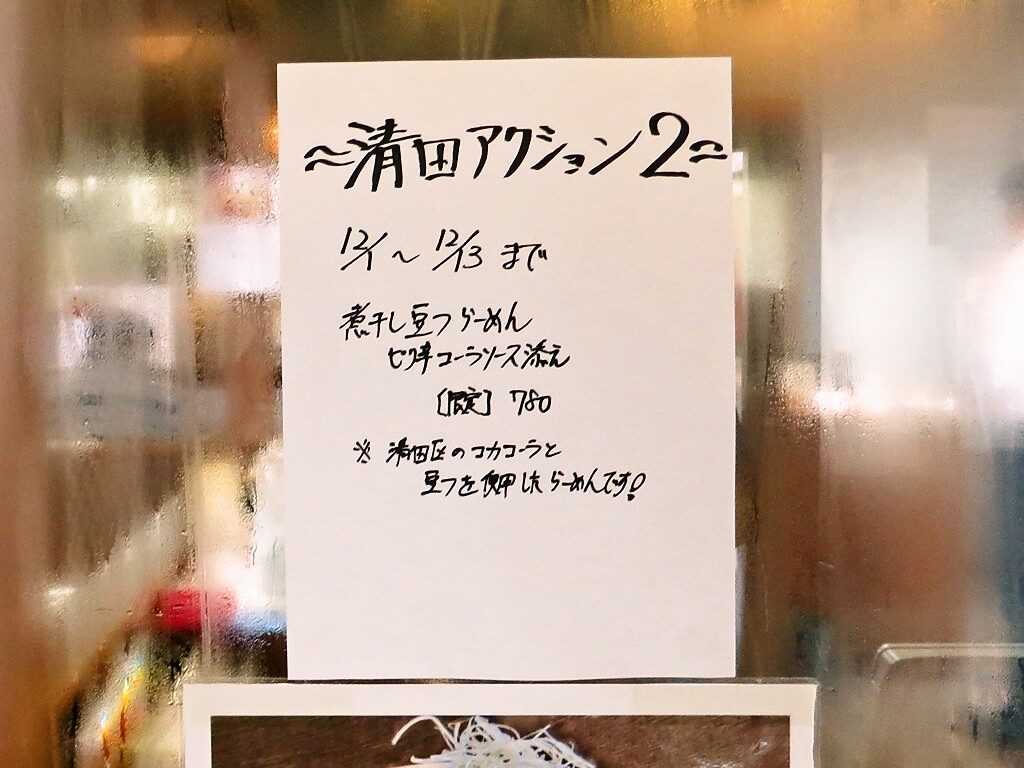 ～清田アクション2～
12/1 ～ 12/13 まで
煮干し豆つらーめん
ピリ辛コーラソース添え
[限定] 780
※ 清田区のコカコーラと
豆つを使用したらーめんです!